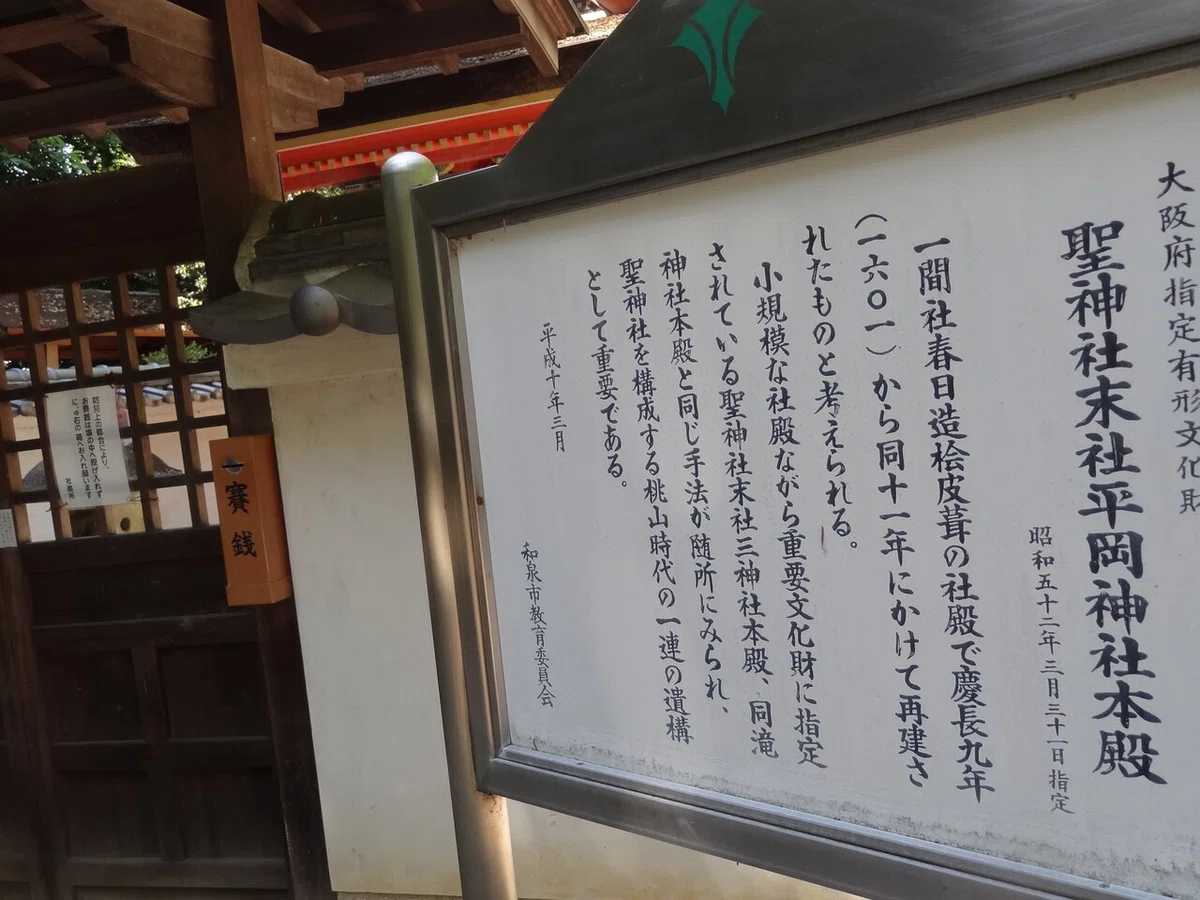 大阪府指定有形文化財
聖神社末社平岡神社本殿
昭和五十二年三月三十一日指定
一間社春日造桧皮葺の社殿で慶長九年
(一六〇一)から同十一年にかけて再建さ
れたものと考えられる。
小規模な社殿ながら重要文化財に指定
されている聖神社末社三神社本殿、同滝
神社本殿と同じ手法が随所にみられ、
聖神社を構成する桃山時代の一連の遺構
として重要である。
平成十年三月
和泉市教育委員会
賽銭
防犯上の都合により、
お賽銭は塀の中へ投げ入れず
に、右の箱へお入れ願います
社務所